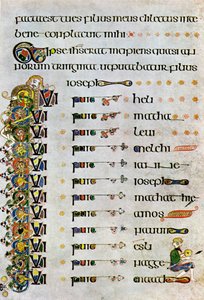 facta est tu es filius meus dilectus in te
bene conplacuit mihi
Ipse ihs erat incipiens quasi an
norum triginta ut putabatur filius
ioseph
Qui fuit heli
Qui fuit mathat
Qui fuit levi
Qui fuit melchi
Qui fuit
Qui fuit ioseph
Qui fuit mathathie
Qui fuit amos
Qui fuit nauum
Qui fuit esli
Qui fuit nagge
Qui fuit maath